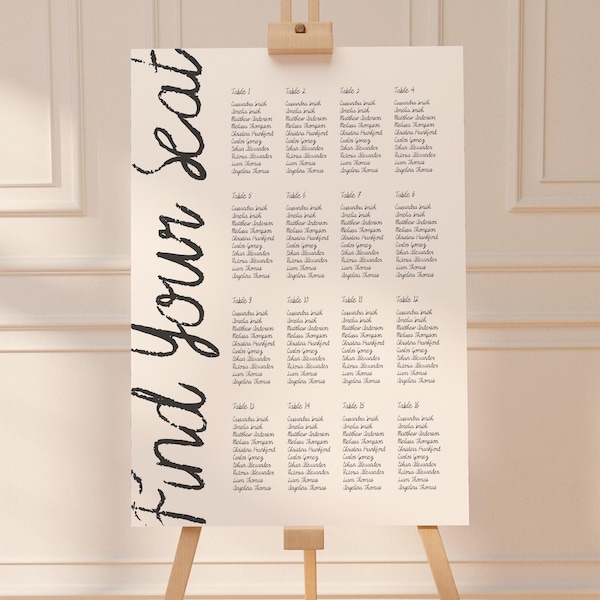 Find Your Seat
Table 1
Cassandra Smith
Amelia Smith
Matthew Anderson
Melissa Thompson
Christina Frankford
Carlos Gomez
Ethan Alexander
Victoria Alexander
Liam Thomas
Angelina Thomas
Table 2
Cassandra Smith
Amelia Smith
Matthew Anderson
Melissa Thompson
Christina Frankford
Carlos Gomez
Ethan Alexander
Victoria Alexander
Liam Thomas
Angelina Thomas
Table 3
Cassandra Smith
Amelia Smith
Matthew Anderson
Melissa Thompson
Christina Frankford
Carlos Gomez
Ethan Alexander
Victoria Alexander
Liam Thomas
Angelina Thomas
Table 4
Cassandra Smith
Amelia Smith
Matthew Anderson
Melissa Thompson
Christina Frankford
Carlos Gomez
Ethan Alexander
Victoria Alexander
Liam Thomas
Angelina Thomas
Table 5
Cassandra Smith
Amelia Smith
Matthew Anderson
Melissa Thompson
Christina Frankford
Carlos Gomez
Ethan Alexander
Victoria Alexander
Liam Thomas
Angelina Thomas
Table 6
Cassandra Smith
Amelia Smith
Matthew Anderson
Melissa Thompson
Christina Frankford
Carlos Gomez
Ethan Alexander
Victoria Alexander
Liam Thomas
Angelina Thomas
Table 7
Cassandra Smith
Amelia Smith
Matthew Anderson
Melissa Thompson
Christina Frankford
Carlos Gomez
Ethan Alexander
Victoria Alexander
Liam Thomas
Angelina Thomas
Table 8
Cassandra Smith
Amelia Smith
Matthew Anderson
Melissa Thompson
Christina Frankford
Carlos Gomez
Ethan Alexander
Victoria Alexander
Liam Thomas
Angelina Thomas
Table 9
Cassandra Smith
Amelia Smith
Matthew Anderson
Melissa Thompson
Christina Frankford
Carlos Gomez
Ethan Alexander
Victoria Alexander
Liam Thomas
Angelina Thomas
Table 10
Cassandra Smith
Amelia Smith
Matthew Anderson
Melissa Thompson
Christina Frankford
Carlos Gomez
Ethan Alexander
Victoria Alexander
Liam Thomas
Angelina Thomas
Table 11
Cassandra Smith
Amelia Smith
Matthew Anderson
Melissa Thompson
Christina Frankford
Carlos Gomez
Ethan Alexander
Victoria Alexander
Liam Thomas
Angelina Thomas
Table 12
Cassandra Smith
Amelia Smith
Matthew Anderson
Melissa Thompson
Christina Frankford
Carlos Gomez
Ethan Alexander
Victoria Alexander
Liam Thomas
Angelina Thomas
Table 13
Cassandra Smith
Amelia Smith
Matthew Anderson
Melissa Thompson
Christina Frankford
Carlos Gomez
Ethan Alexander
Victoria Alexander
Liam Thomas
Angelina Thomas
Table 14
Cassandra Smith
Amelia Smith
Matthew Anderson
Melissa Thompson
Christina Frankford
Carlos Gomez
Ethan Alexander
Victoria Alexander
Liam Thomas
Angelina Thomas
Table 15
Cassandra Smith
Amelia Smith
Matthew Anderson
Melissa Thompson
Christina Frankford
Carlos Gomez
Ethan Alexander
Victoria Alexander
Liam Thomas
Angelina Thomas
Table 16
Cassandra Smith
Amelia Smith
Matthew Anderson
Melissa Thompson
Christina Frankford
Carlos Gomez
Ethan Alexander
Victoria Alexander
Liam Thomas
Angelina Thomas